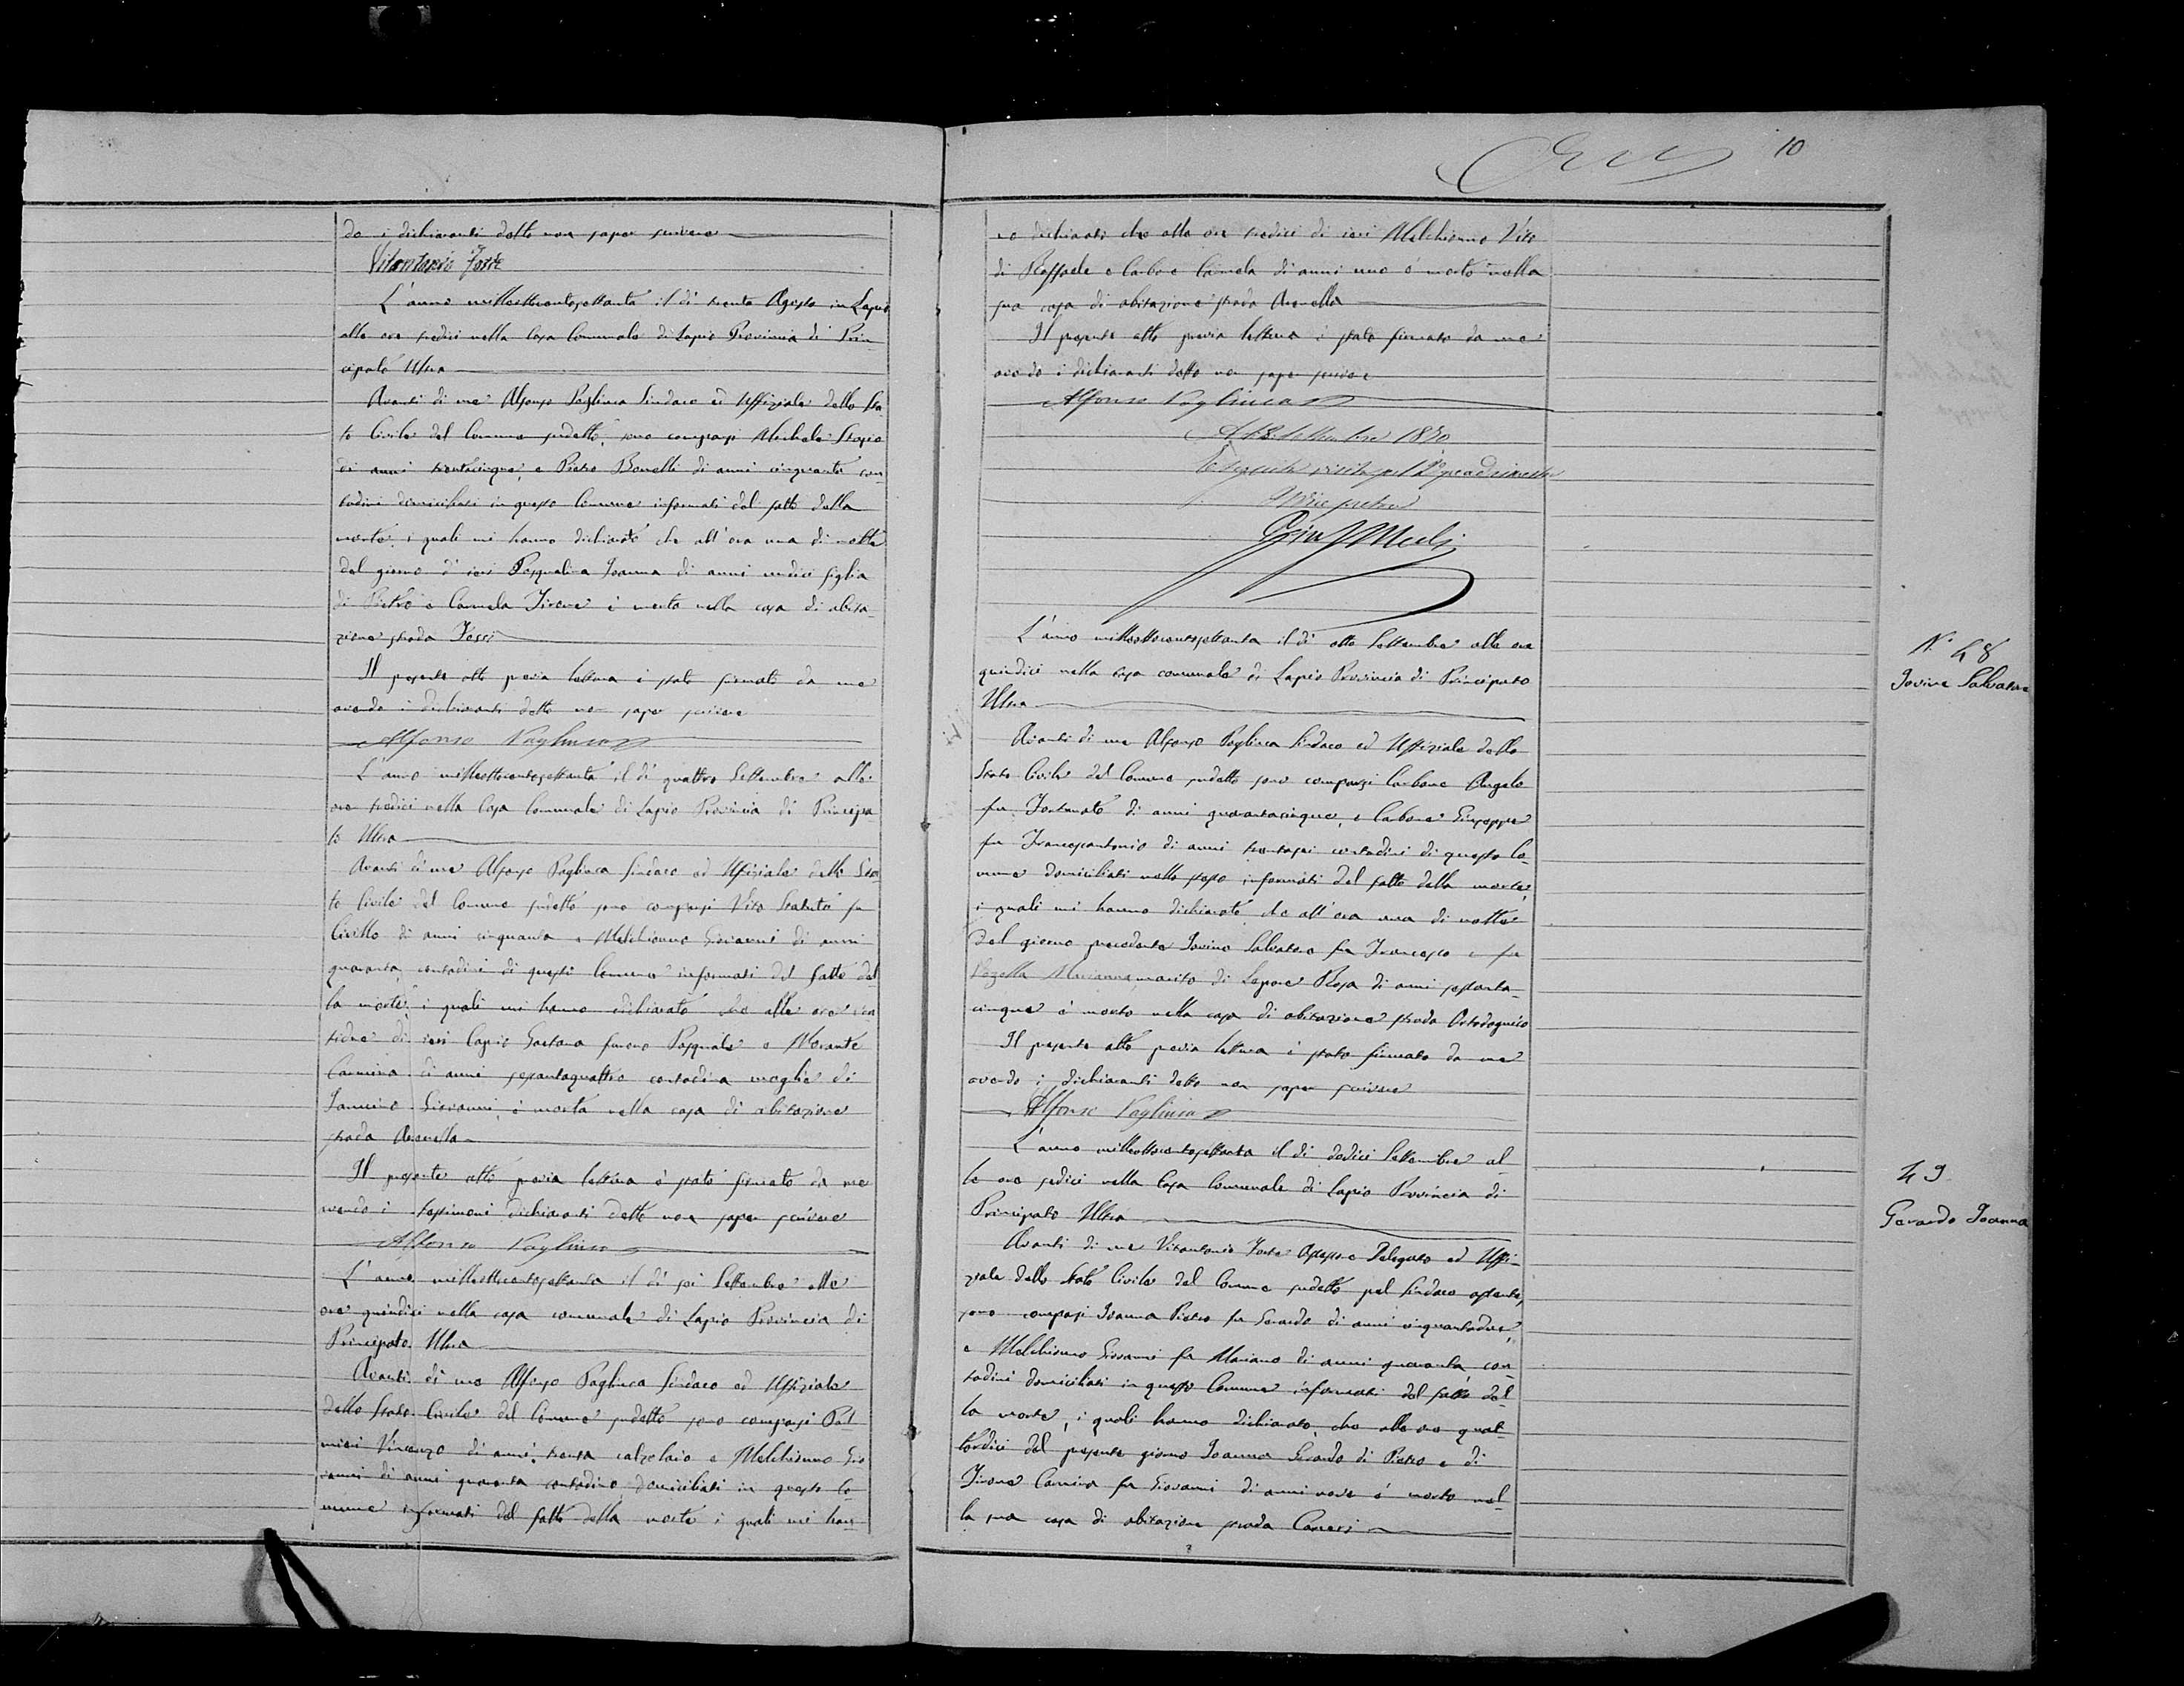 do i dichiaranti detto non saper scrivere
Vitantonio Forte
L'anno milleottocentosettanta il dì trenta Agosto in Lapio
alle ore tredici nella Casa Comunale di Lapio Provincia di Prin-
cipato Ultra
Avanti di me Alfonso Pagliuca Sindaco ed Uffiziale dello Sta-
to Civile del Comune sudetto, sono comparsi Michele
di anni trentacinque, e Pietro di anni cinquanta con-
tadini domiciliati in questo Comune informati del fatto della
morte, i quali mi hanno dichiarato che all'ora una di notte
del giorno d'ieri Pasqualina Ioanna di anni undici figlia
di Pietro e Carmela Firone è morta nella casa di abita-
zione strada
Il presente atto previa lettura è stato firmato da me
avendo i dichiaranti detto non saper scrivere
Alfonso Pagliuca
L'anno milleottocentosettanta il dì quattro Settembre alle
ore tredici nella Casa Comunale di Lapio Provincia di Principa-
to Ultra
Avanti di me Alfonso Pagliuca Sindaco ed Uffiziale dello Sta-
to Civile del Comune sudetto sono comparsi Vito fu
Cirillo di anni cinquanta e Melchionno Giovanni di anni
quaranta, contadini di questo Comune informati del fatto del-
la morte, i quali mi hanno dichiarato che alle ore ven-
tidue di ieri Capio Gaetana furono Pasquale e Morante
Carmina di anni sessantaquattro contadina moglie di
Giovanni, è morta nella casa di abitazione
strada Arenella
Il presente atto previa lettura è stato firmato da me
avendo i testimoni dichiaranti detto non saper scrivere
Alfonso Pagliuca
L'anno milleottocentosettanta il dì sei Settembre alle
ore quindici nella casa comunale di Lapio Provincia di
Principato Ultra
Avanti di me Alfonso Pagliuca Sindaco ed Uffiziale
dello Stato Civile del Comune sudetto sono comparsi Pal-
mieri Vincenzo di anni trenta calzolaio e Melchionno Gio-
vanni di anni quaranta contadino domiciliati in questo Co-
mune informati del fatto della morte i quali mi han-
10
no dichiarato che alle ore tredici di ieri Melchionno Vito
di Raffaele e Carbone Carmela di anni uno è morto nella
sua casa di abitazione strada Arenella
Il presente atto previa lettura è stato firmato da me
avendo i dichiaranti detto non saper scrivere
Alfonso Pagliuca
Settembre 1870
Eseguita visita pel 2° quadrimestre
Il Vice pretore
L'anno milleottocentosettanta il dì otto Settembre alle ore
quindici nella casa comunale di Lapio Provincia di Principato
Ultra
Avanti di me Alfonso Pagliuca Sindaco ed Uffiziale dello
Stato Civile del Comune sudetto sono comparsi Carbone Angelo
fu Fortunato di anni quarantacinque, e Carbone Giuseppe
fu Francescantonio di anni trentasei contadini di questo Co-
mune domiciliati nello stesso informati del fatto della morte,
i quali mi hanno dichiarato che all'ora una di notte
del giorno precedente Iovino Salvatore fu Francesco e fu
Marianna marito di Lepore Rosa di anni settanta-
cinque è morto nella casa di abitazione strada
Il presente atto previa lettura è stato firmato da me
avendo i dichiaranti detto non saper scrivere
Alfonso Pagliuca
L'anno milleottocentosettanta il dì dodici Settembre al-
le ore sedici nella Casa Comunale di Lapio Provincia di
Principato Ultra
Avanti di me Vitantonio Forte Assessore Delegato ed Uffi-
ziale dello Stato Civile del Comune sudetto pel Sindaco assente,
sono comparsi Ioanna Pietro fu Gerardo di anni cinquantadue,
e Melchionno Giovanni fu Mariano di anni quaranta, con-
tadini domiciliati in questo Comune informati del fatto del-
la morte, i quali hanno dichiarato, che alle ore quat-
tordici del presente giorno Ioanna Gerardo di Pietro e di
Firone Carmina fu Giovanni di anni nove è morto nel-
la sua casa di abitazione strada
N. 48
Iovine Salvatore
49
Gerardo Ioanna